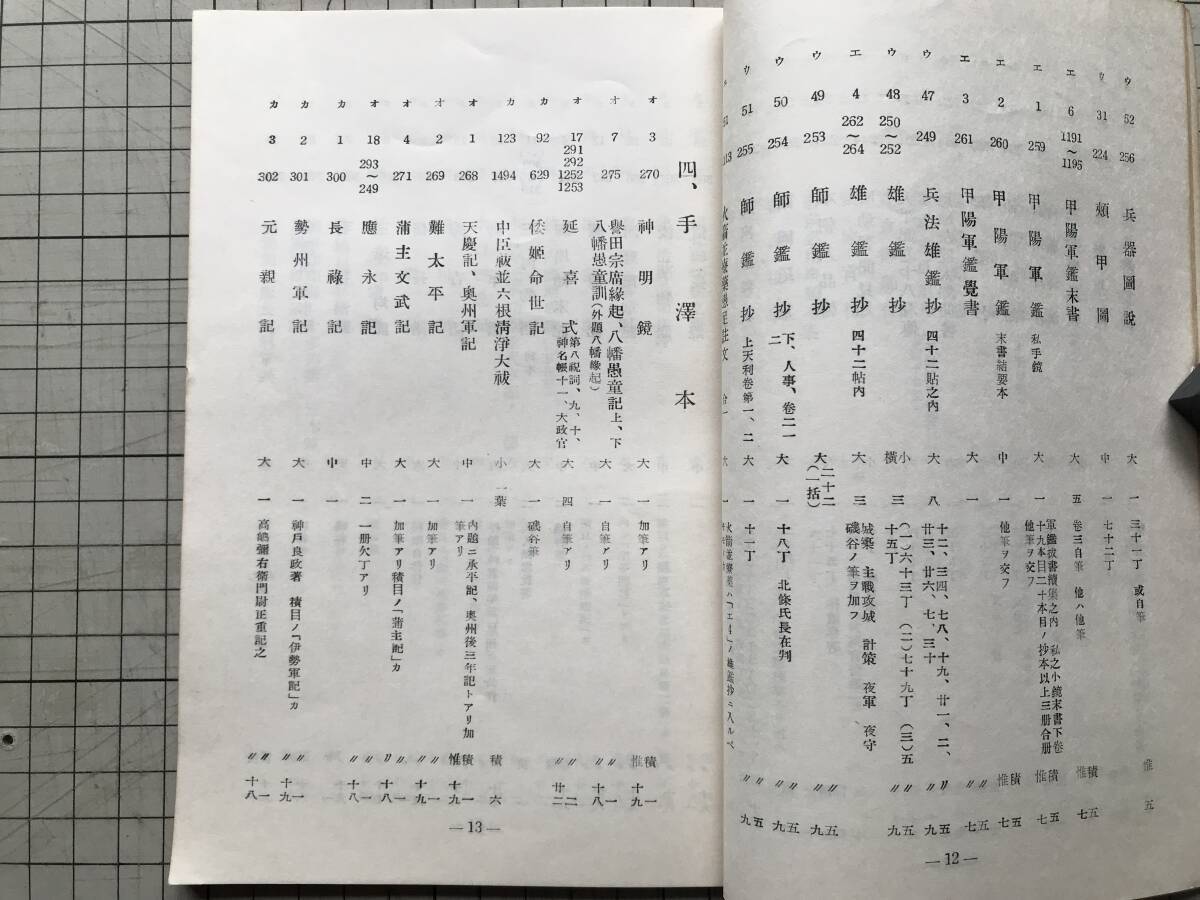 ウ 52 256 兵器圖說 大 一 三十一丁 或自筆 惟 五
ウ 31 224 頰甲圖 中 一 七十二丁
エ 6 1191～1195 甲陽軍鑑末書 大 五 卷三自筆 他ハ他筆 積惟 五七
エ 1 259 甲陽軍鑑 私手鏡 大 一 軍鑑拔書續集之內 私之小鏡末書下卷十九本目二十本目ノ抄本以上三册合册 他筆ヲ交フ 積惟 五七
エ 2 260 甲陽軍鑑 末書結要本 中 一 他筆ヲ交フ 積惟 五七
エ 3 261 甲陽軍鑑覺書 大 一 〃〃 五七
ウ 47 249 兵法雄鑑抄 四十二貼之內 大 八 十二、三四、七八、十九、廿一、二、廿三、廿六、七、三十 〃〃 五九
ウ 48 250～252 雄鑑抄 小橫 三 (一)六十三丁 (二)七十九丁 (三)五十五丁 〃〃 五九
エ 4 262～264 雄鑑抄 四十二帖內 大 三 城築 主戰攻城 計策 夜軍 夜守 磯谷ノ筆ヲ加フ
ウ 49 253 師鑑抄 大 二十二(一括) 〃〃 五九
ウ 50 254 師鑑抄 下、人事、卷二一二 大 一 十八丁 北條氏長在判 〃〃 五九
ウ 51 255 師鑑抄 上天利卷第一、二 大 一 十一丁 〃〃 五九
—12—
四、手澤本
オ 3 270 神明鏡 大 一 加筆アリ 積惟 一十九
オ 7 275 譽田宗廣緣起、八幡愚童記上、下 八幡愚童訓(外題八幡緣起) 大 一 自筆アリ 〃〃 一十八
オ 17 291 292 1252 1253 延喜式 第八祝詞、九、十、神名帳十一、大政官 大 四 自筆アリ 〃〃 二廿二
カ 92 629 倭姬命世記 大 一 磯谷筆
カ 123 1494 中臣祓並六根淸淨大祓 小 一葉 積 六
オ 1 268 天慶記、奧州軍記 中 一 內題ニ承平記、奧州後三年記トアリ加筆アリ 積惟 一十九
オ 2 269 難太平記 大 一 加筆アリ 〃〃 一十九
オ 4 271 蒲主文武記 大 一 加筆アリ積目ノ「蒲主記」カ 〃〃 一十八
オ 18 293～249 應永記 中 二 一册欠丁アリ 〃〃 一十八
カ 1 300 長祿記 中 一
カ 2 301 勢州軍記 大 一 神戶良政著 積目ノ「伊勢軍記」カ 〃〃 一十九
カ 3 302 元親記 大 一 高嶋彌右衞門尉正重記之 〃〃 一十八
—13—